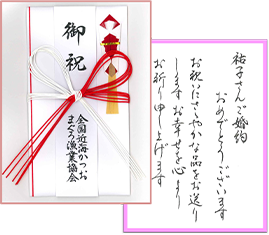 御祝
全国近海かつお
まぐろ漁業協会
祐子さんご婚約
おめでとうございます
お祝いにささやかな品をお送り
しますお幸せを心より
お祈り申し上げます